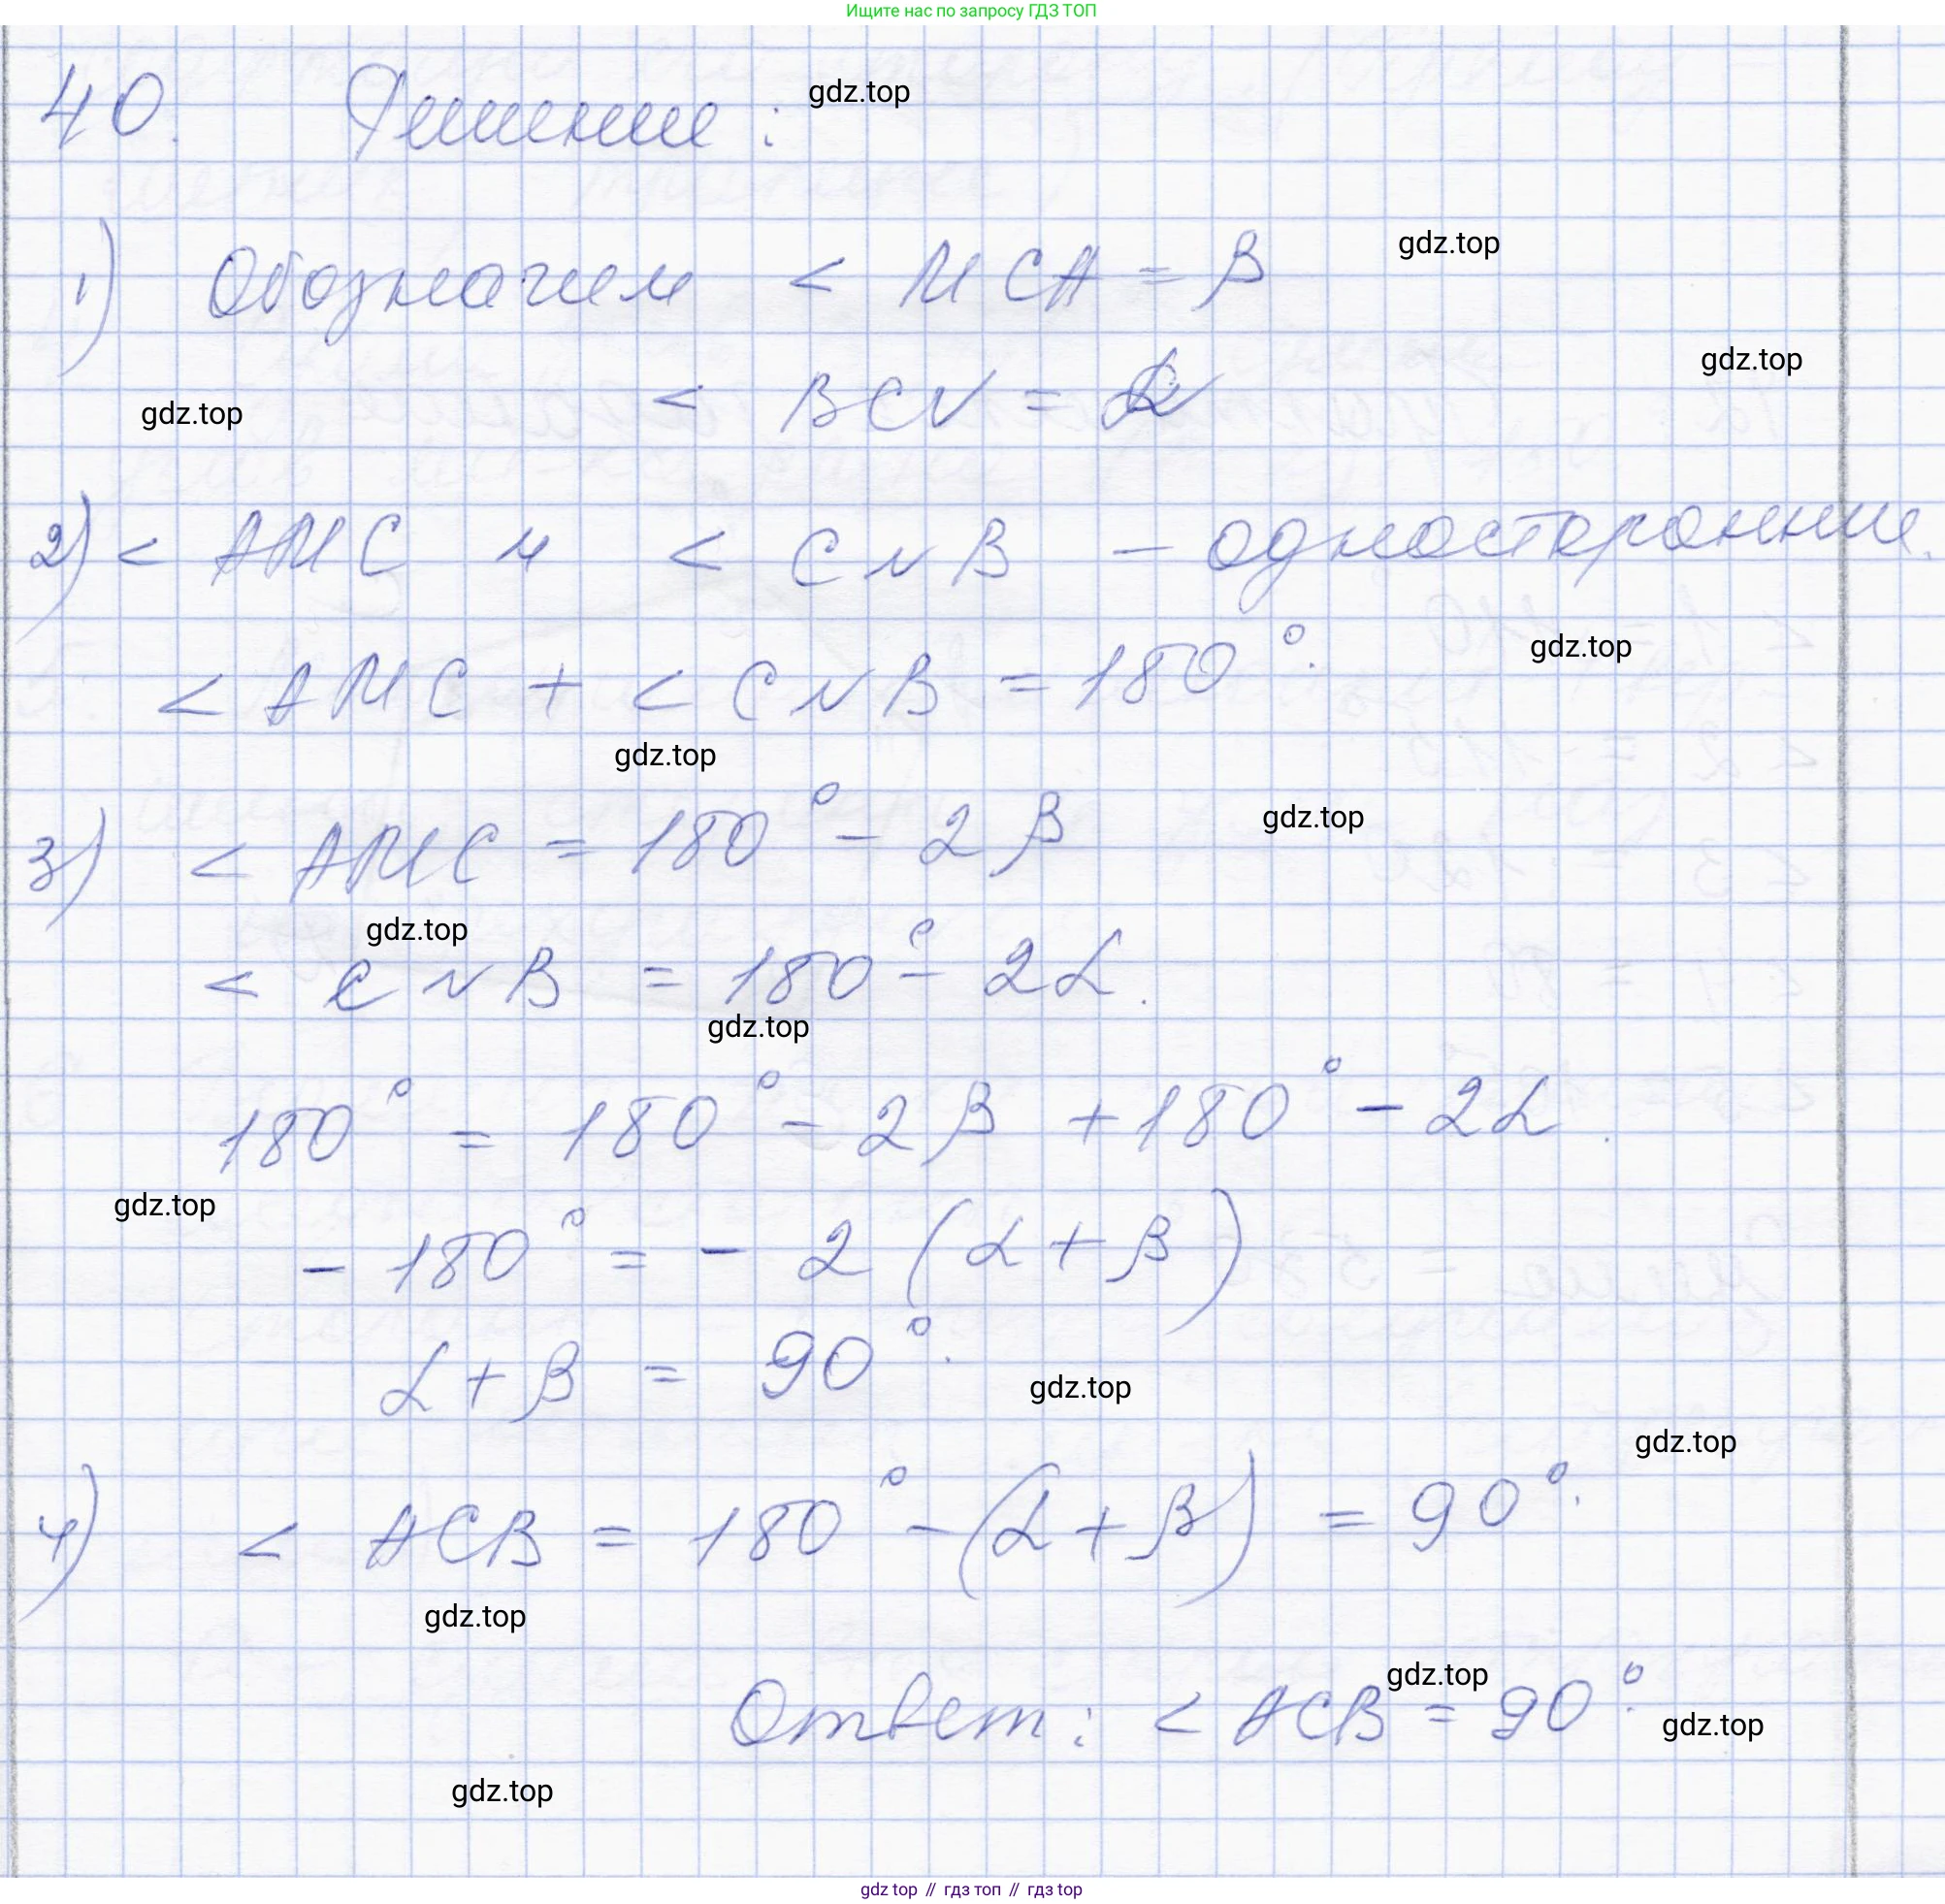 Ищите нас по запросу ГДЗ ТОП
40. Решение:
gdz.top
1) Обозначим < MCA = β
gdz.top
gdz.top
< BCN = α
gdz.top
2) < AMC и < CNB – односторонние.
< AMC + < CNB = 180°.
gdz.top
gdz.top
3) < AMC = 180° - 2β
gdz.top
gdz.top
< CNB = 180° - 2α.
gdz.top
180° = 180° - 2β + 180° - 2α.
gdz.top
- 180° = - 2 (α + β)
α + β = 90°.
gdz.top
gdz.top
4) < ACB = 180° - (α + β) = 90°.
gdz.top
gdz.top
Ответ: < ACB = 90°.
gdz.top
gdz.top
gdz top // гдз топ // гдз top